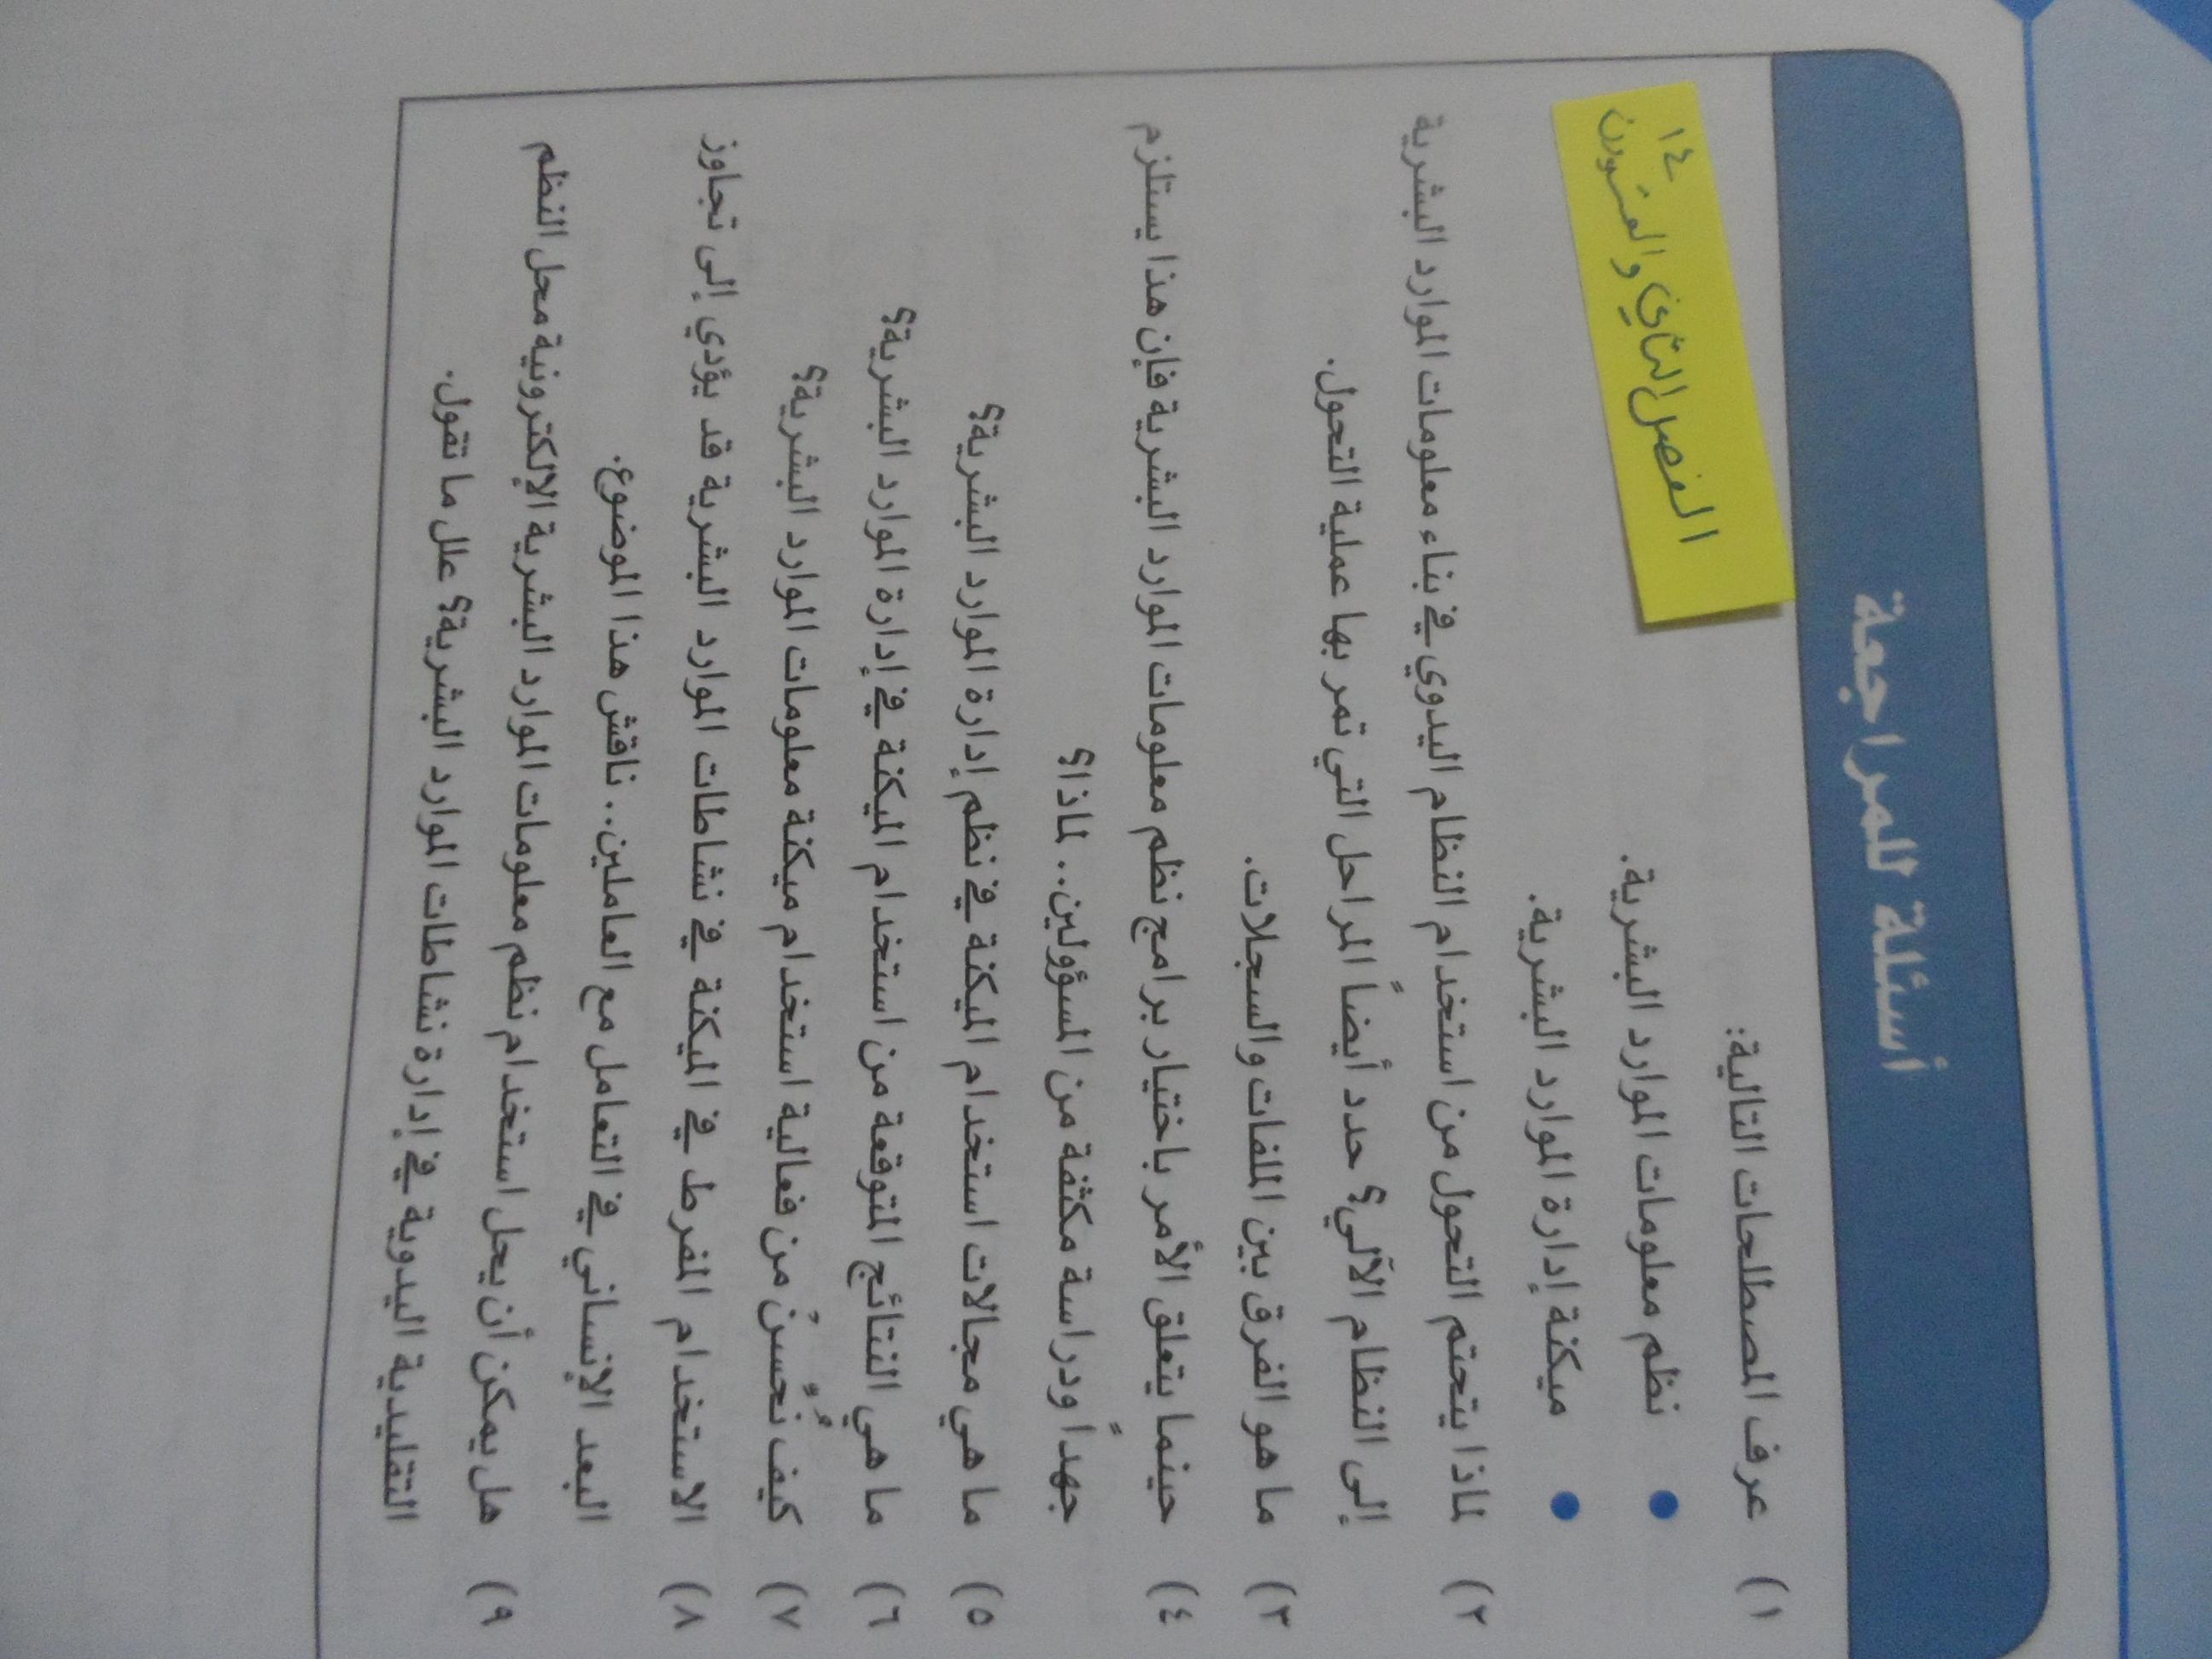 أسئلة للمراجعة
١٤
الفصل الثاني والعشرون
١) عرف المصطلحات التالية:
• نظم معلومات الموارد البشرية.
• ميكنة إدارة الموارد البشرية.
٢) لماذا يتحتم التحول من استخدام النظام اليدوي في بناء معلومات الموارد البشرية
إلى النظام الآلي؟ حدد أيضاً المراحل التي تمر بها عملية التحول.
٣) ما هو الفرق بين الملفات والسجلات.
٤) حينما يتعلق الأمر باختيار برامج نظم معلومات الموارد البشرية فإن هذا يستلزم
جهداً ودراسة مكثفة من المسؤولين.. لماذا؟
٥) ما هي مجالات استخدام الميكنة في نظم إدارة الموارد البشرية؟
٦) ما هي النتائج المتوقعة من استخدام الميكنة في إدارة الموارد البشرية؟
٧) كيف نُحسِّنُ من فعالية استخدام ميكنة معلومات الموارد البشرية؟
٨) الاستخدام المفرط في الميكنة في نشاطات الموارد البشرية قد يؤدي إلى تجاوز
البعد الإنساني في التعامل مع العاملين.. ناقش هذا الموضوع.
٩) هل يمكن أن يحل استخدام نظم معلومات الموارد البشرية الإلكترونية محل النظم
التقليدية اليدوية في إدارة نشاطات الموارد البشرية؟ علل ما تقول.